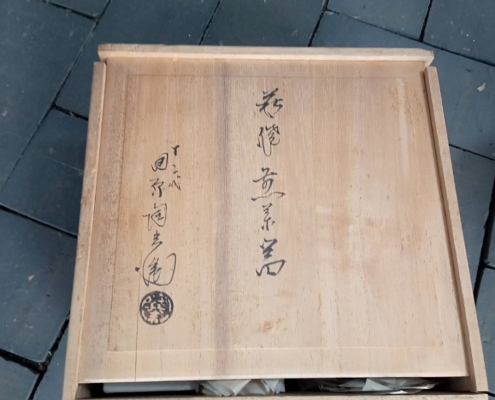 萩燒煎茶器
十二代
田原陶兵衛